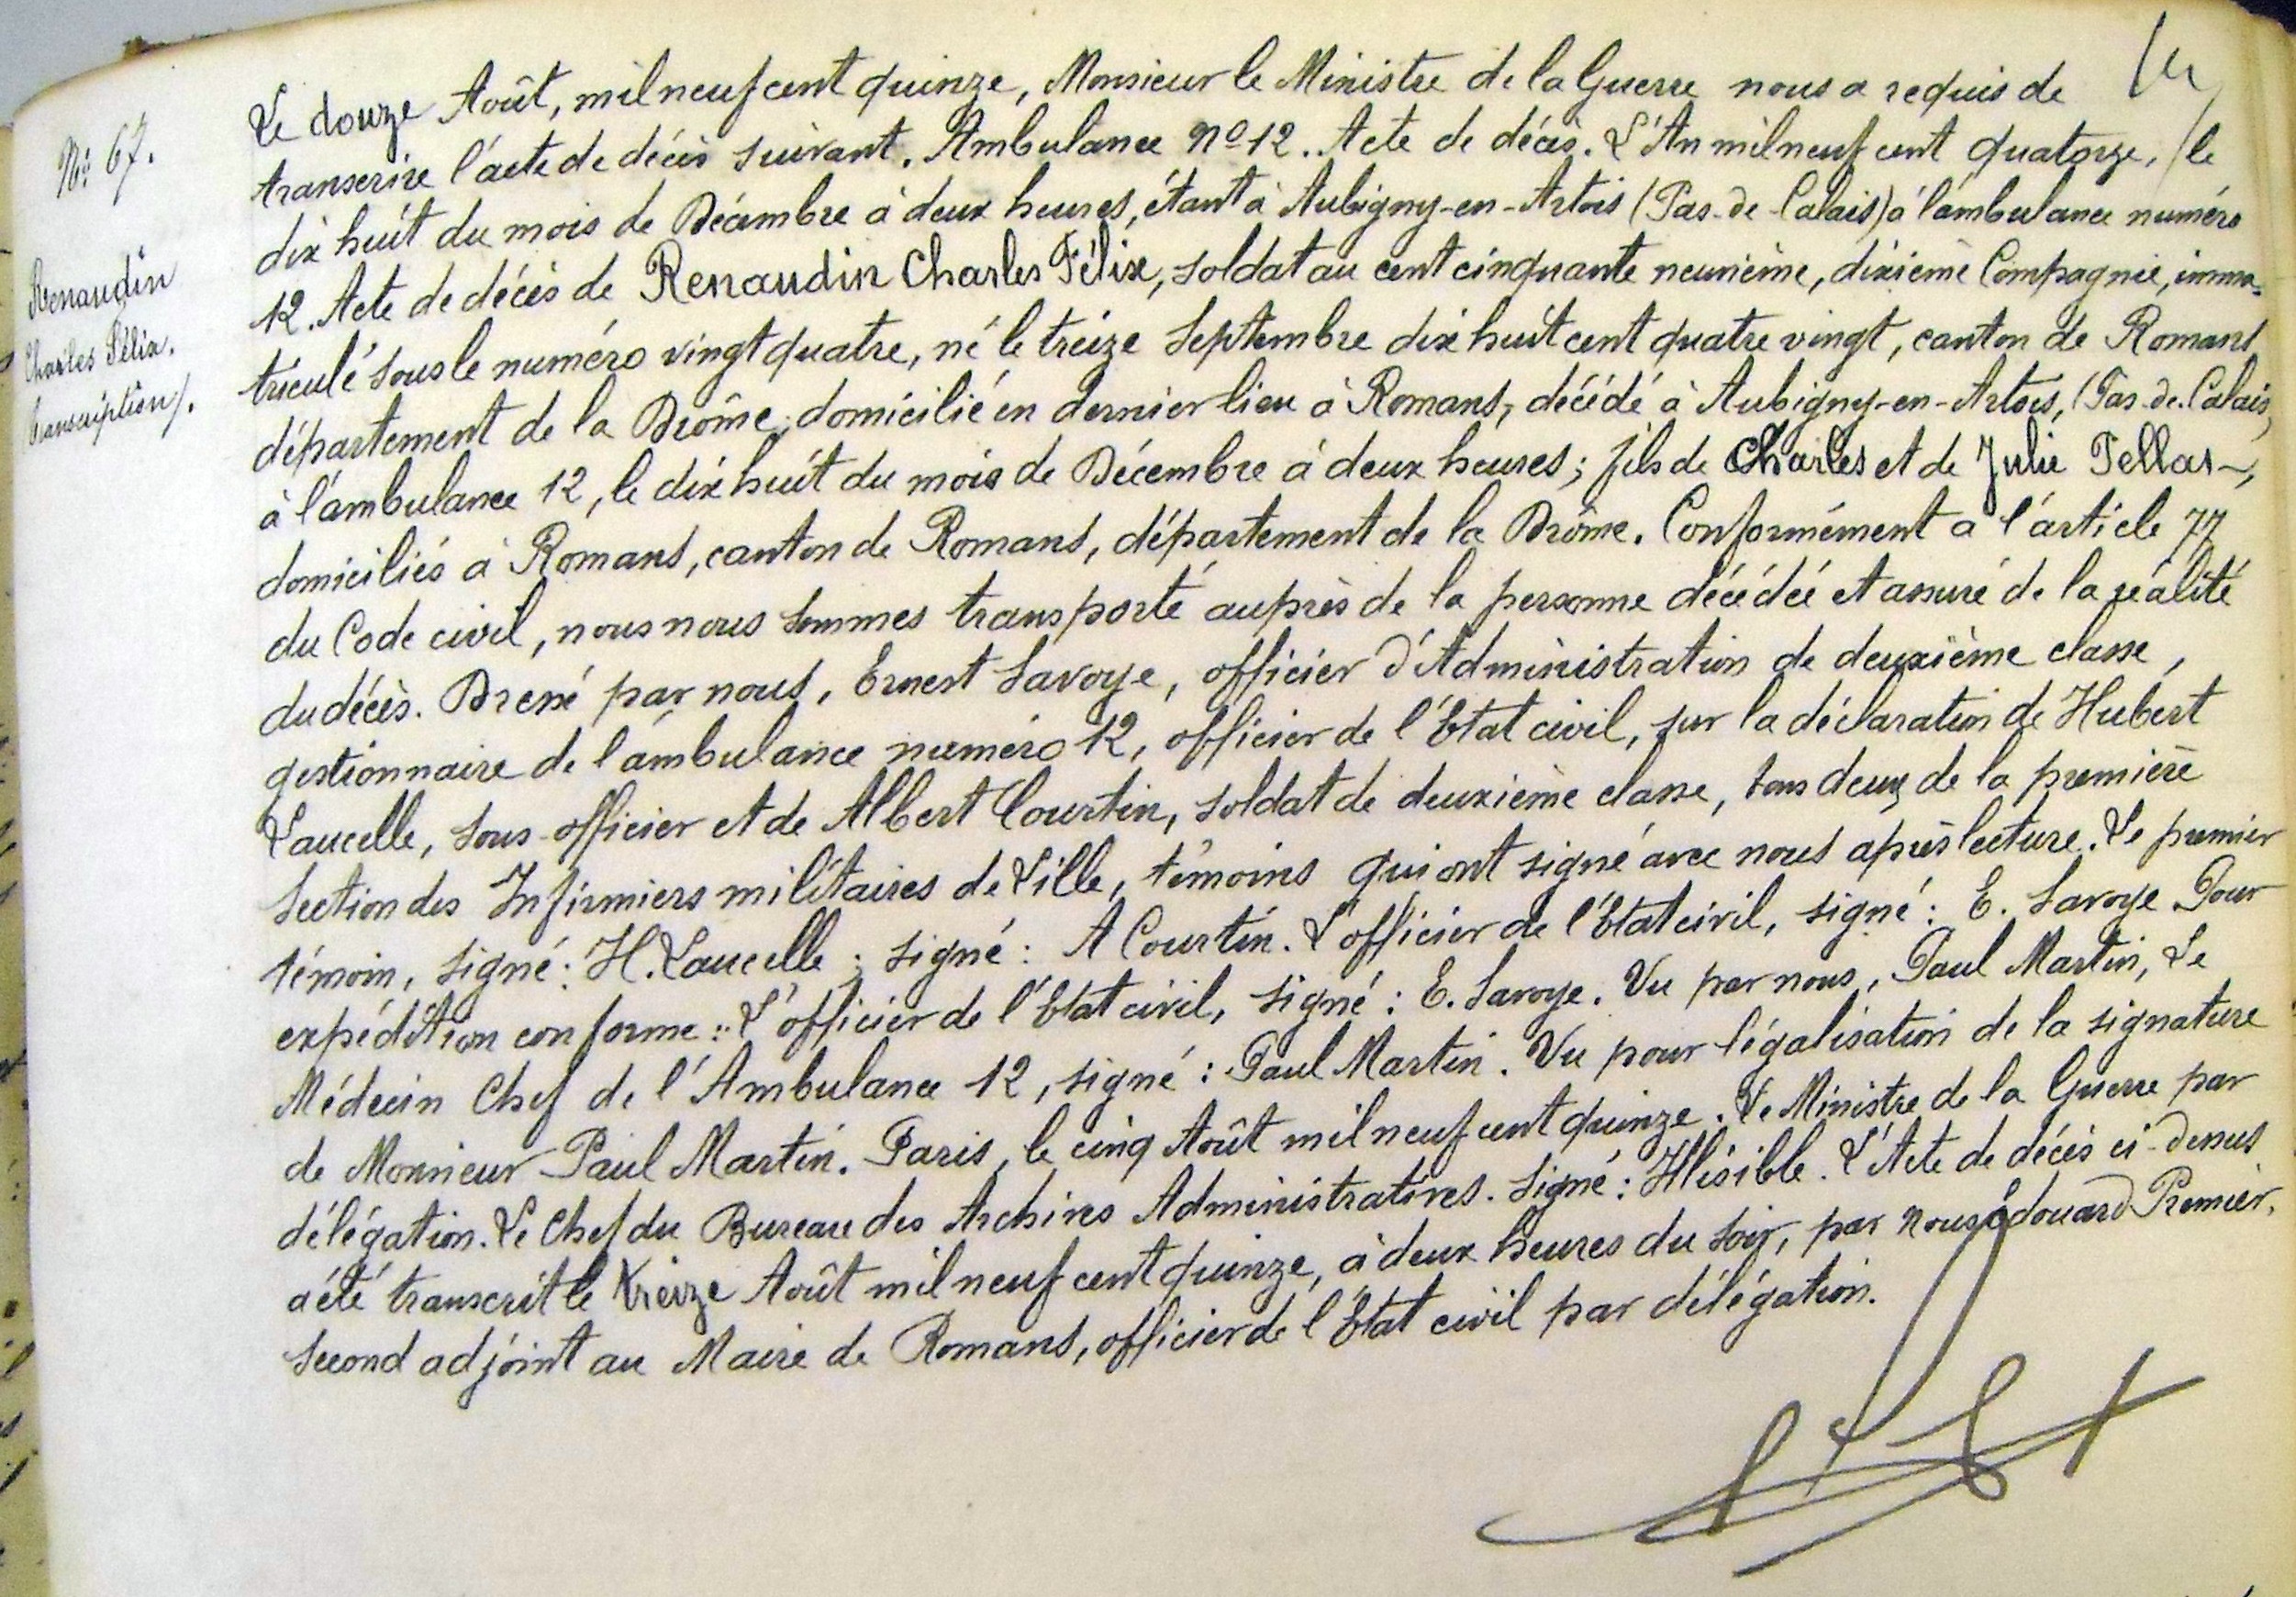 N° 67.
Renaudin
Charles Félix.
transcription/.
Le douze Août, mil neuf cent quinze, Monsieur le Ministre de la Guerre nous a requis de
transcrire l'acte de décès suivant. Ambulance N° 12. Acte de décès. L'An mil neuf cent quatorze, le
dix huit du mois de Décembre à deux heures, étant à Aubigny-en-Artois (Pas-de-Calais) à l'ambulance numéro
12. Acte de décès de Renaudin Charles Félix, soldat au cent cinquante neuvième, dixième Compagnie, imma-
triculé sous le numéro vingt quatre, né le treize Septembre dix huit cent quatre vingt, canton de Romans
département de la Drôme, domicilié en dernier lieu à Romans, décédé à Aubigny-en-Artois, (Pas-de-Calais,
à l'ambulance 12, le dix huit du mois de Décembre à deux heures; fils de Charles et de Julie Pellas-,
domiciliés à Romans, canton de Romans, département de la Drôme. Conformément a l'article 77
du Code civil, nous nous sommes transporté auprès de la personne décédée et assuré de la réalité
du décès. Dressé par nous, Ernest Savoye, officier d'Administration de deuxième classe,
gestionnaire de l'ambulance numéro 12, officier de l'Etat civil, sur la déclaration de Hubert
Laucelle, sous-officier et de Albert Courtin, soldat de deuxième classe, tous deux de la première
Section des Infirmiers militaires de Lille, témoins qui ont signé avec nous après lecture. Le premier
témoin, signé: H. Laucelle; signé: A Courtin. L'officier de l'Etat civil, signé: E. Savoye Pour
expédition conforme: L'officier de l'Etat civil, signé: E. Savoye. Vu par nous, Paul Martin, Le
Médecin Chef de l'Ambulance 12, signé: Paul Martin. Vu pour légalisation de la signature
de Monsieur Paul Martin. Paris, le cinq Août mil neuf cent quinze. Le Ministre de la Guerre par
délégation. Le Chef du Bureau des Archives Administratives. Signé: Illisible. L'Acte de décès ci-dessus
a été transcrit le treize Août mil neuf cent quinze, à deux heures du soir, par nous Edouard Premier,
second adjoint au Maire de Romans, officier de l'Etat civil par délégation.